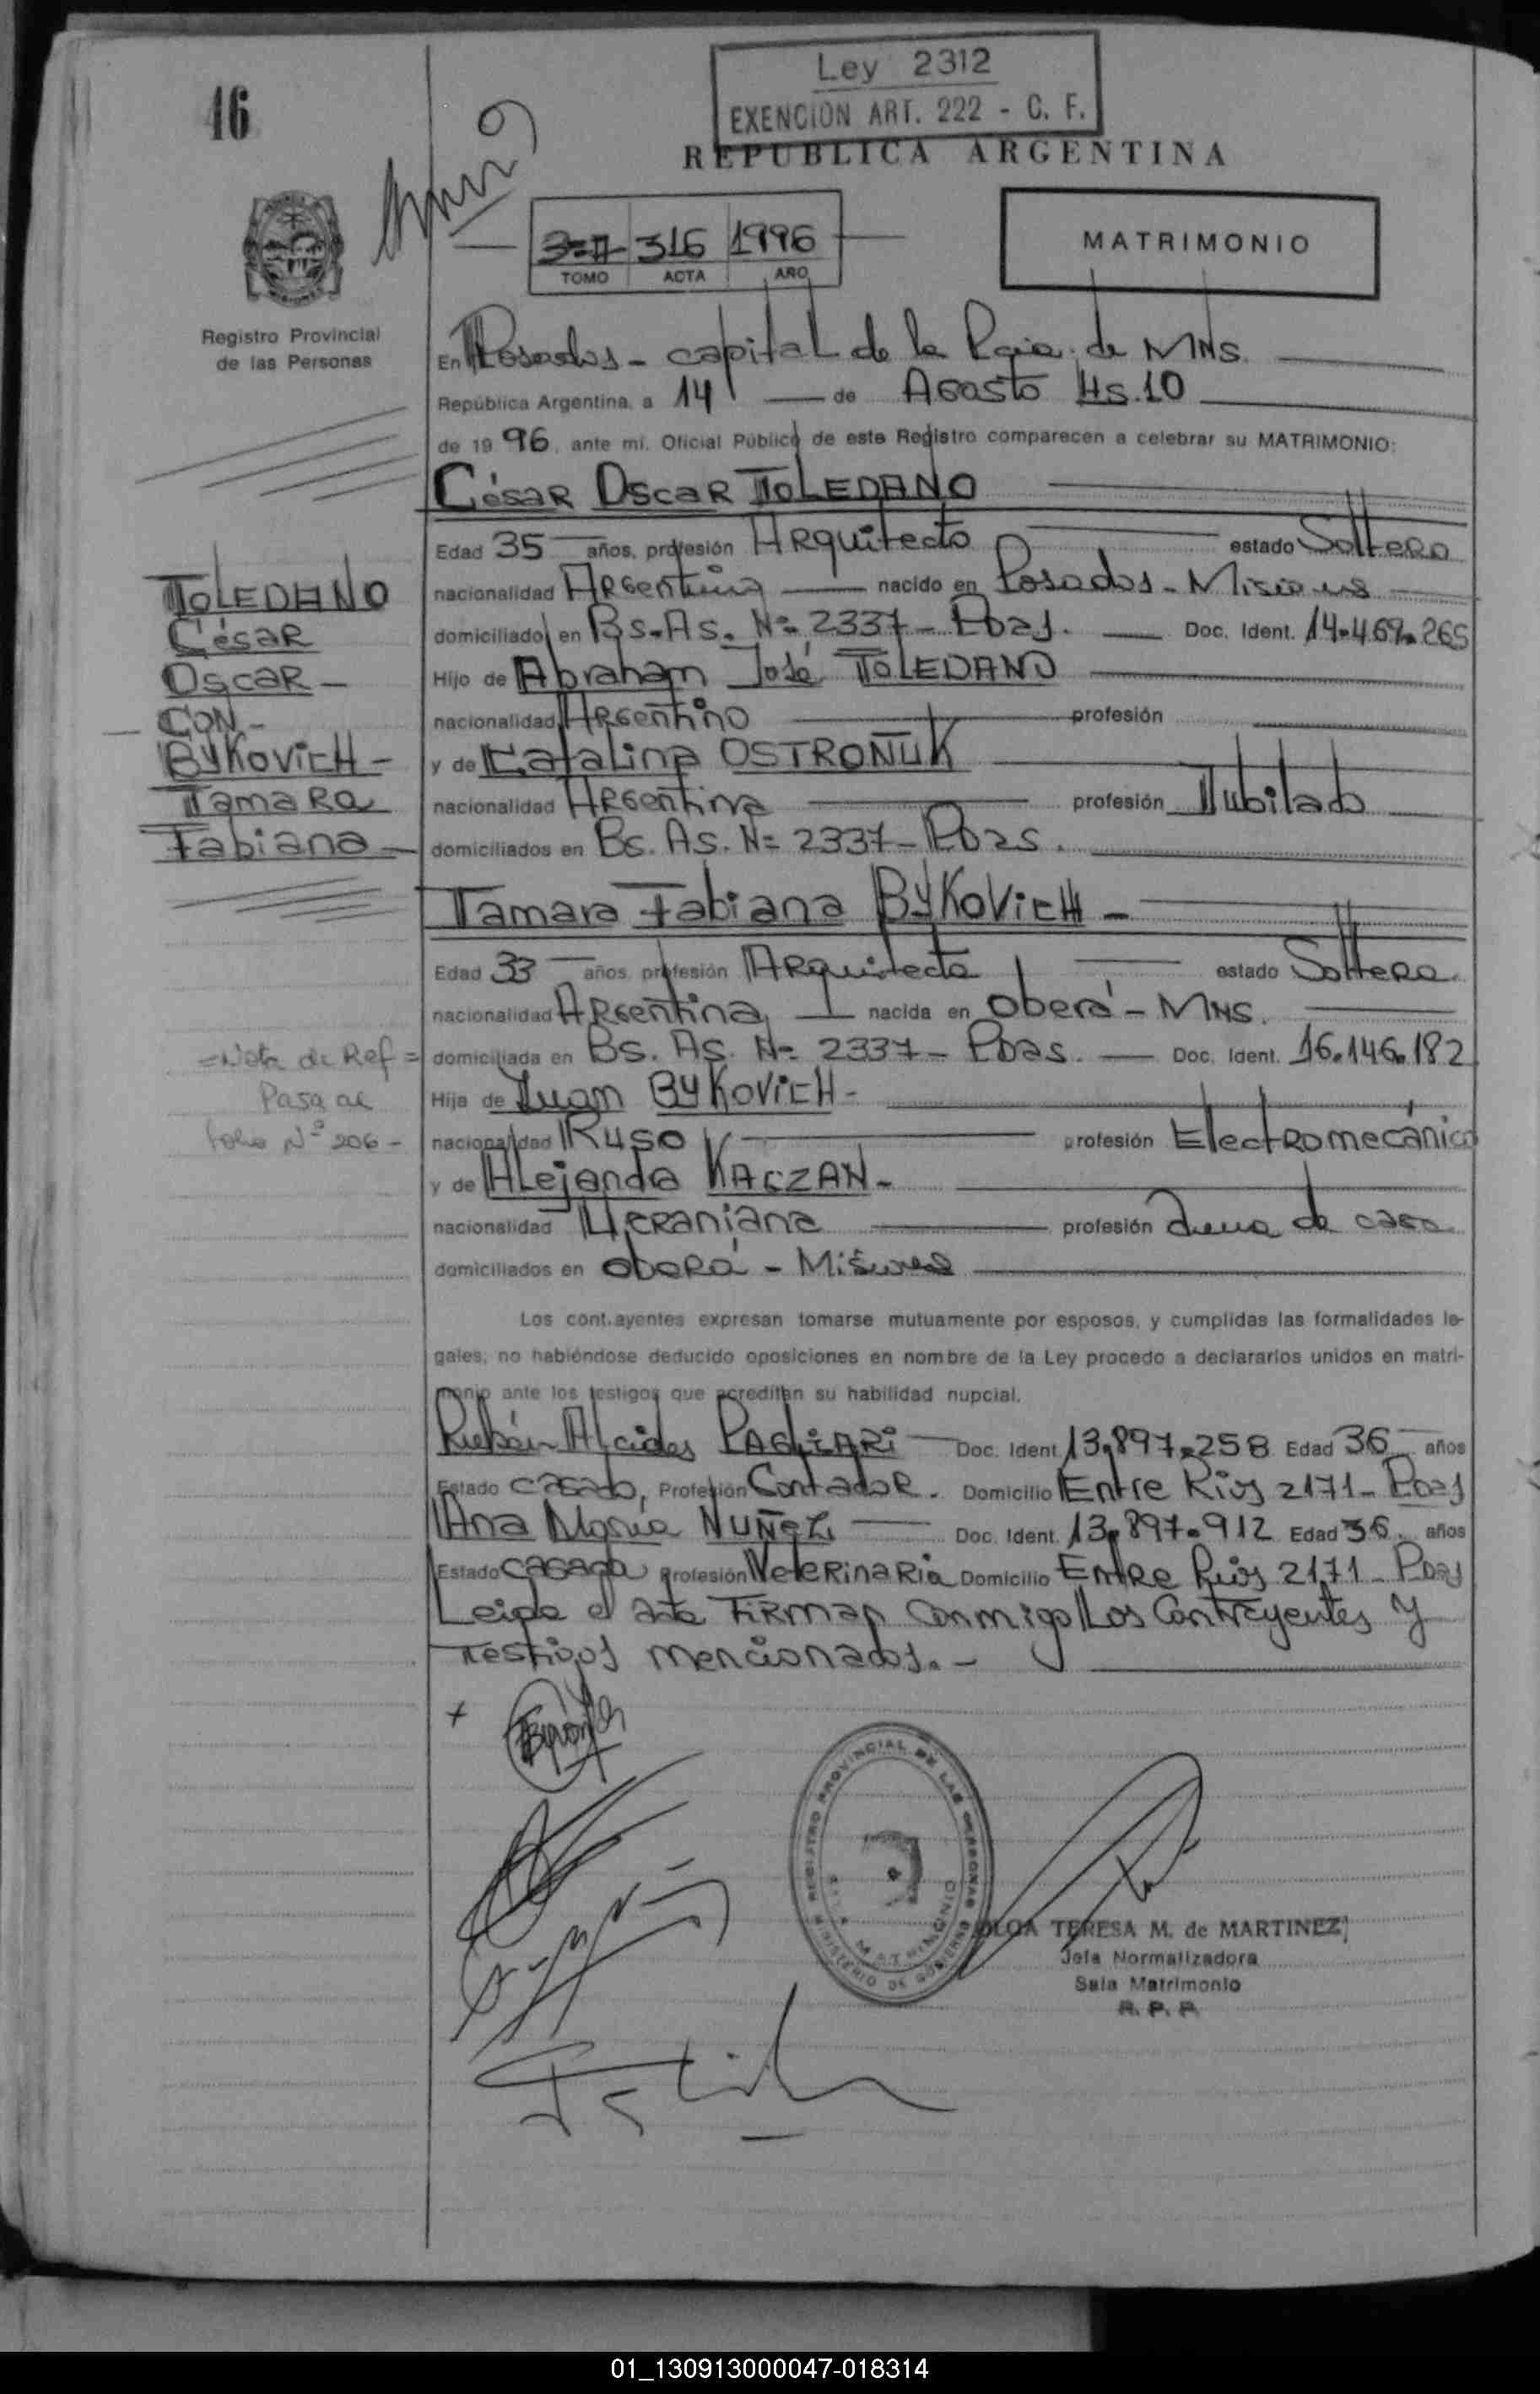 Ley 2312
EXENCION ART. 222 - C. F.
16
REPUBLICA ARGENTINA
316 1996
TOMO ACTA AÑO
MATRIMONIO
Registro Provincial
de las Personas
En Posadas - capital de la Pcia. de MNS.
República Argentina, a 14 de Agosto Hs. 10
de 19 96, ante mi. Oficial Público de este Registro comparecen a celebrar su MATRIMONIO:
César Oscar TOLEDANO
Edad 35 años, profesión Arquitecto estado Soltero
nacionalidad Argentina nacido en Posadas - Misiones
domiciliado en Bs. As. Nº 2337 - Pdas. Doc. Ident. 14.469.265
Hijo de Abraham José TOLEDANO
nacionalidad Argentino profesión
y de Catalina OSTROÑUK
nacionalidad Argentina profesión Jubilado
domiciliados en Bs. As. Nº 2337 - Pdas.
TOLEDANO
César
Oscar -
CON -
BYKOVICH -
Tamara
Fabiana -
Tamara Fabiana BYKOVICH -
Edad 33 años, profesión Arquitecta estado Soltera
nacionalidad Argentina nacida en Oberá - MNS.
domiciliada en Bs. As. Nº 2337 - Pdas. Doc. Ident. 16.146.182
Hija de Juan BYKOVICH -
nacionalidad Ruso profesión Electromecánico
y de Alejandra KACZAN -
nacionalidad Ucraniana profesión Ama de casa
domiciliados en Oberá - Misiones
= Nota de Ref =
Pasa al
folio Nº 206 -
Los contrayentes expresan tomarse mutuamente por esposos, y cumplidas las formalidades le-
gales, no habiéndose deducido oposiciones en nombre de la Ley procedo a declararlos unidos en matri-
monio ante los testigos que acreditan su habilidad nupcial.
Rubén Alcides PAGLIARI Doc. Ident. 13.897.258 Edad 36 años
Estado casado, Profesión Contador. Domicilio Entre Rios 2171 - Pdas
Ana María NUÑEZ Doc. Ident. 13.897.912 Edad 36 años
Estado casada Profesión Veterinaria Domicilio Entre Rios 2171 - Pdas
Leida el acta Firman conmigo Los Contrayentes y
Testigos mencionados. -
REGISTRO PROVINCIAL DE LAS PERSONAS
MINISTERIO DE GOBIERNO
SALA MATRIMONIO
OLGA TERESA M. de MARTINEZ
Jefa Normalizadora
Sala Matrimonio
R. P. P.
01_130913000047-018314